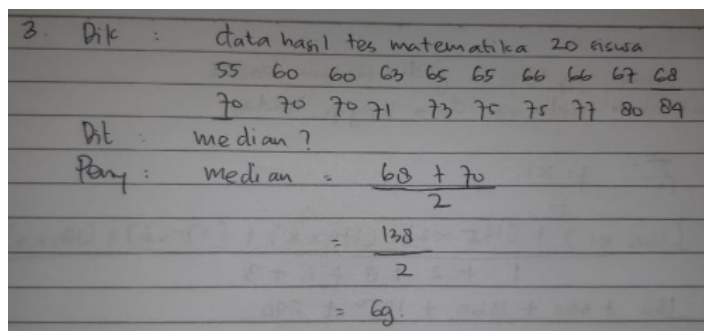 3. Dik : data hasil tes matematika 20 siswa
55 60 60 63 65 65 66 66 67 68
70 70 70 71 73 75 75 77 80 84
Dit : median ?
Peny : median = 68 + 70
2
= 138
2
= 69.